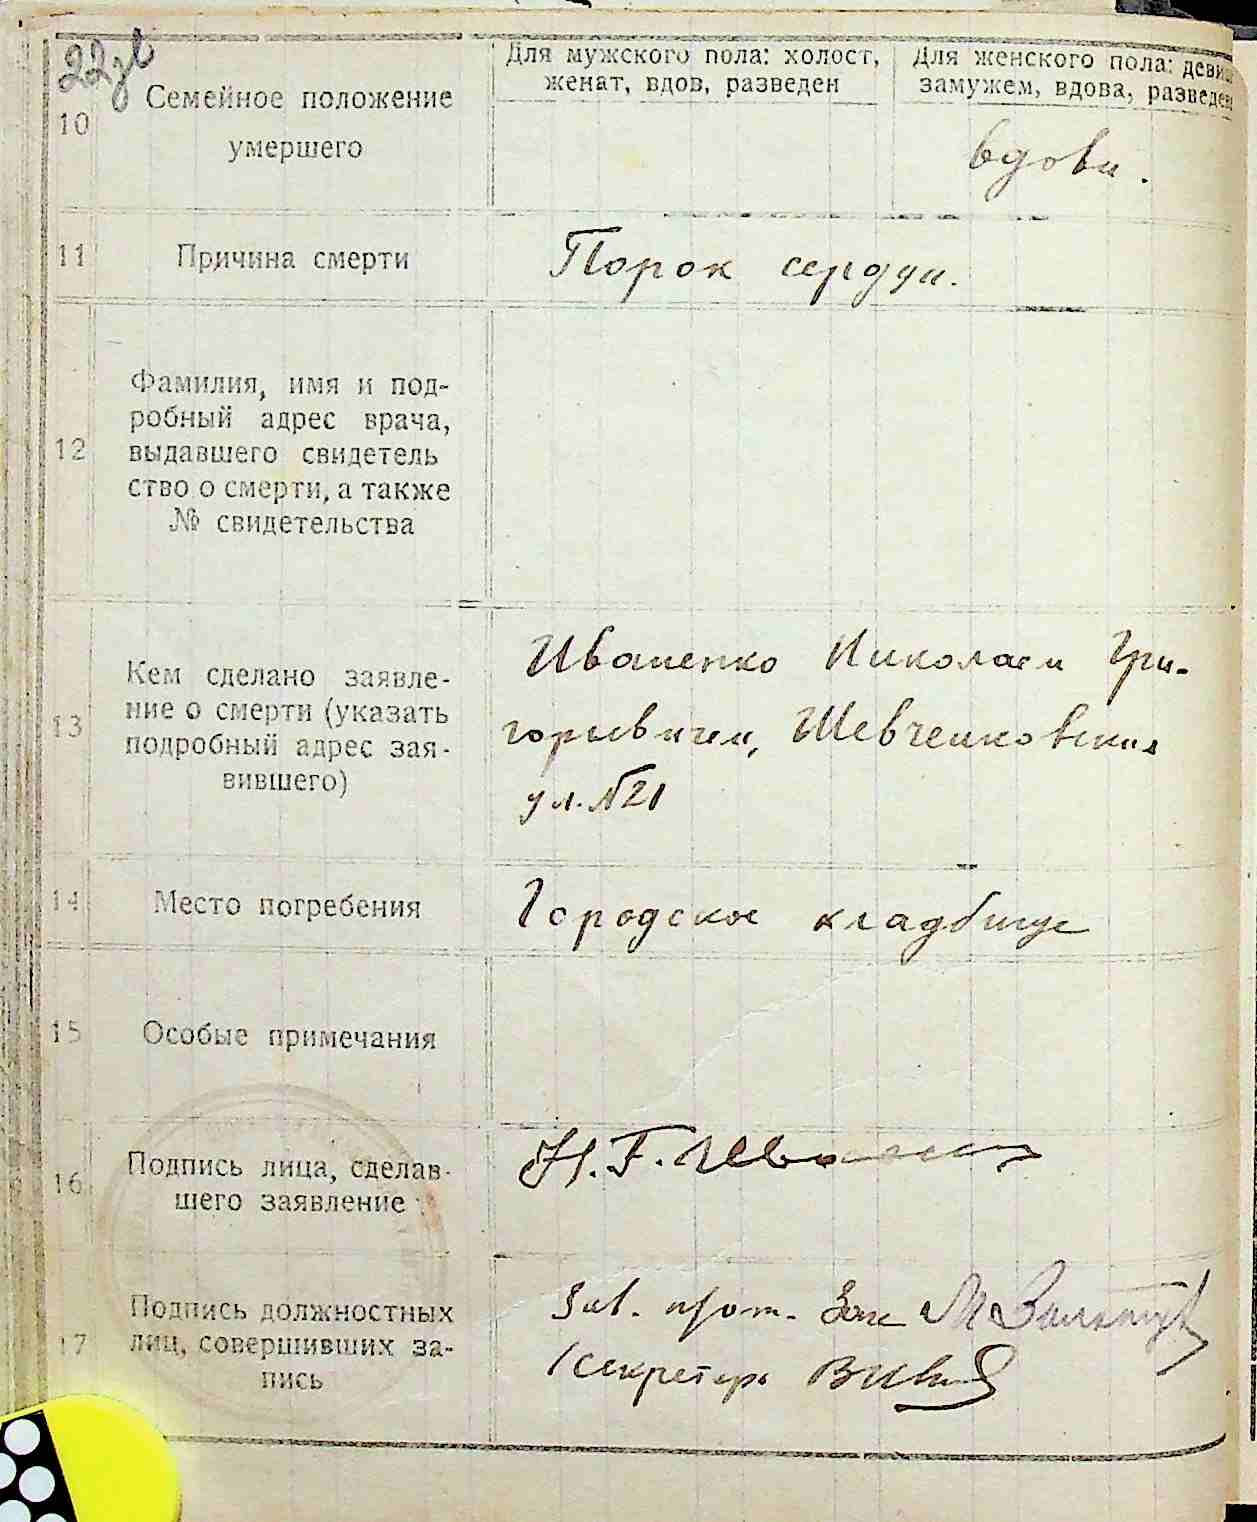 22зв
Для мужского пола: холост,
женат, вдов, разведен
Для женского пола: девиц
замужем, вдова, разведен
10
Семейное положение
умершего
вдова.
11
Причина смерти
Порок сердца.
12
Фамилия, имя и под-
робный адрес врача,
выдавшего свидетель
ство о смерти, а также
№ свидетельства
13
Кем сделано заявле-
ние о смерти (указать
подробный адрес зая-
вившего)
Иваненко Николаем Гри-
горьевичем, Шевченковская
ул. №21
14
Место погребения
Городское кладбище
15
Особые примечания
16
Подпись лица, сделав-
шего заявление
Н. Г. Иваненко
17
Подпись должностных
лиц, совершивших за-
пись
Зав.
Секретарь